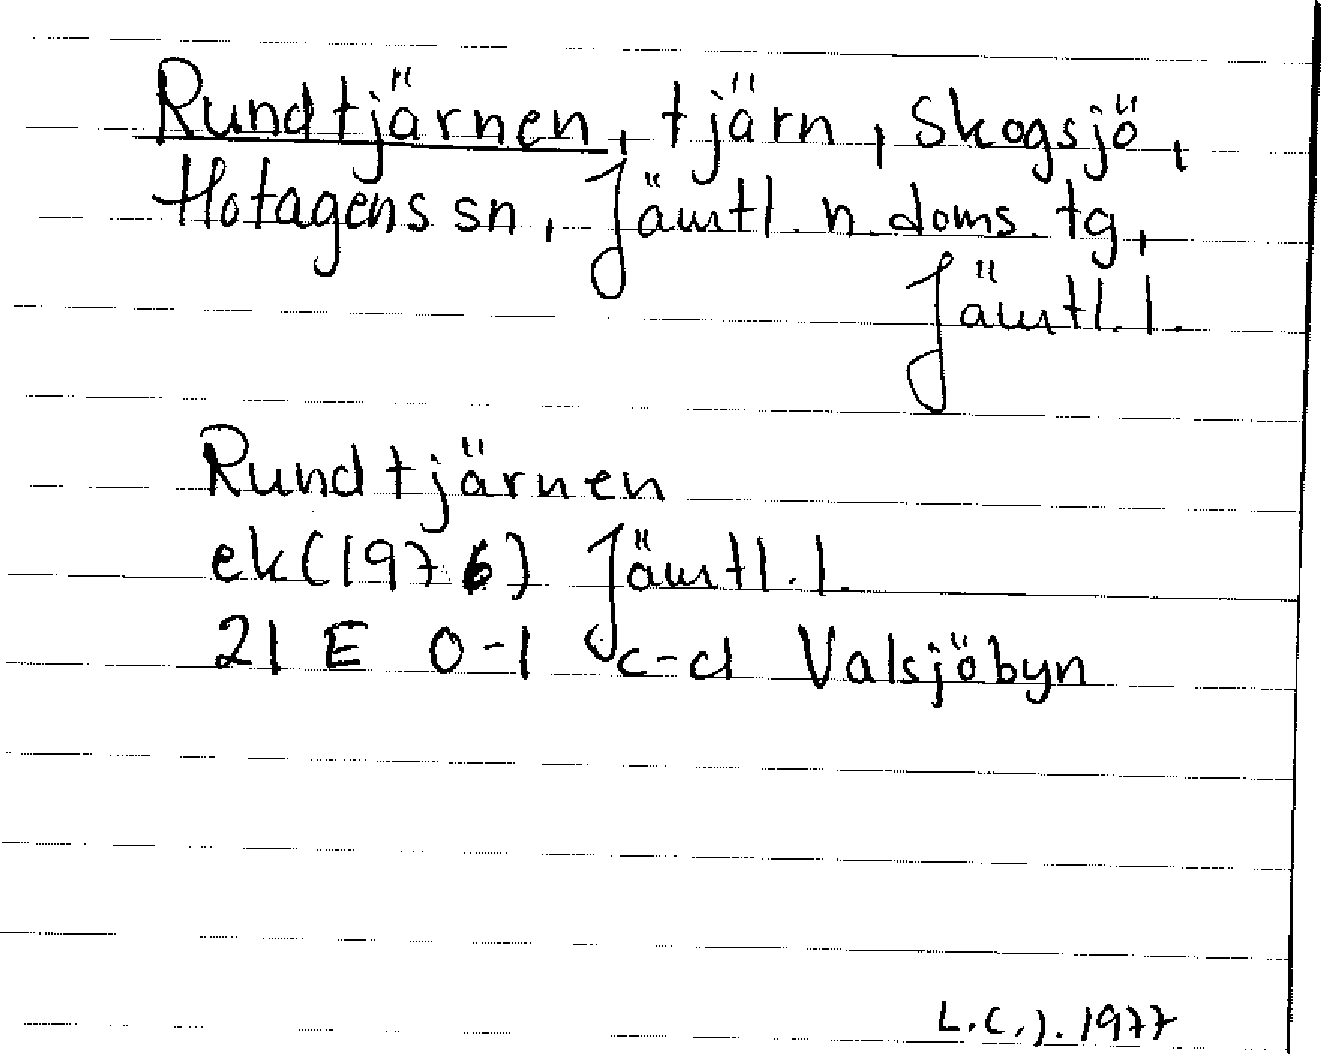 Rundtjärnen, tjärn, Skogsjö,
Hotagens sn, Jämtl. n. doms. tg,
Jämtl. l.
Rundtjärnen
ek (1976) Jämtl. l.
21 E 0-1 c-d Valsjöbyn
L.C.J. 1977